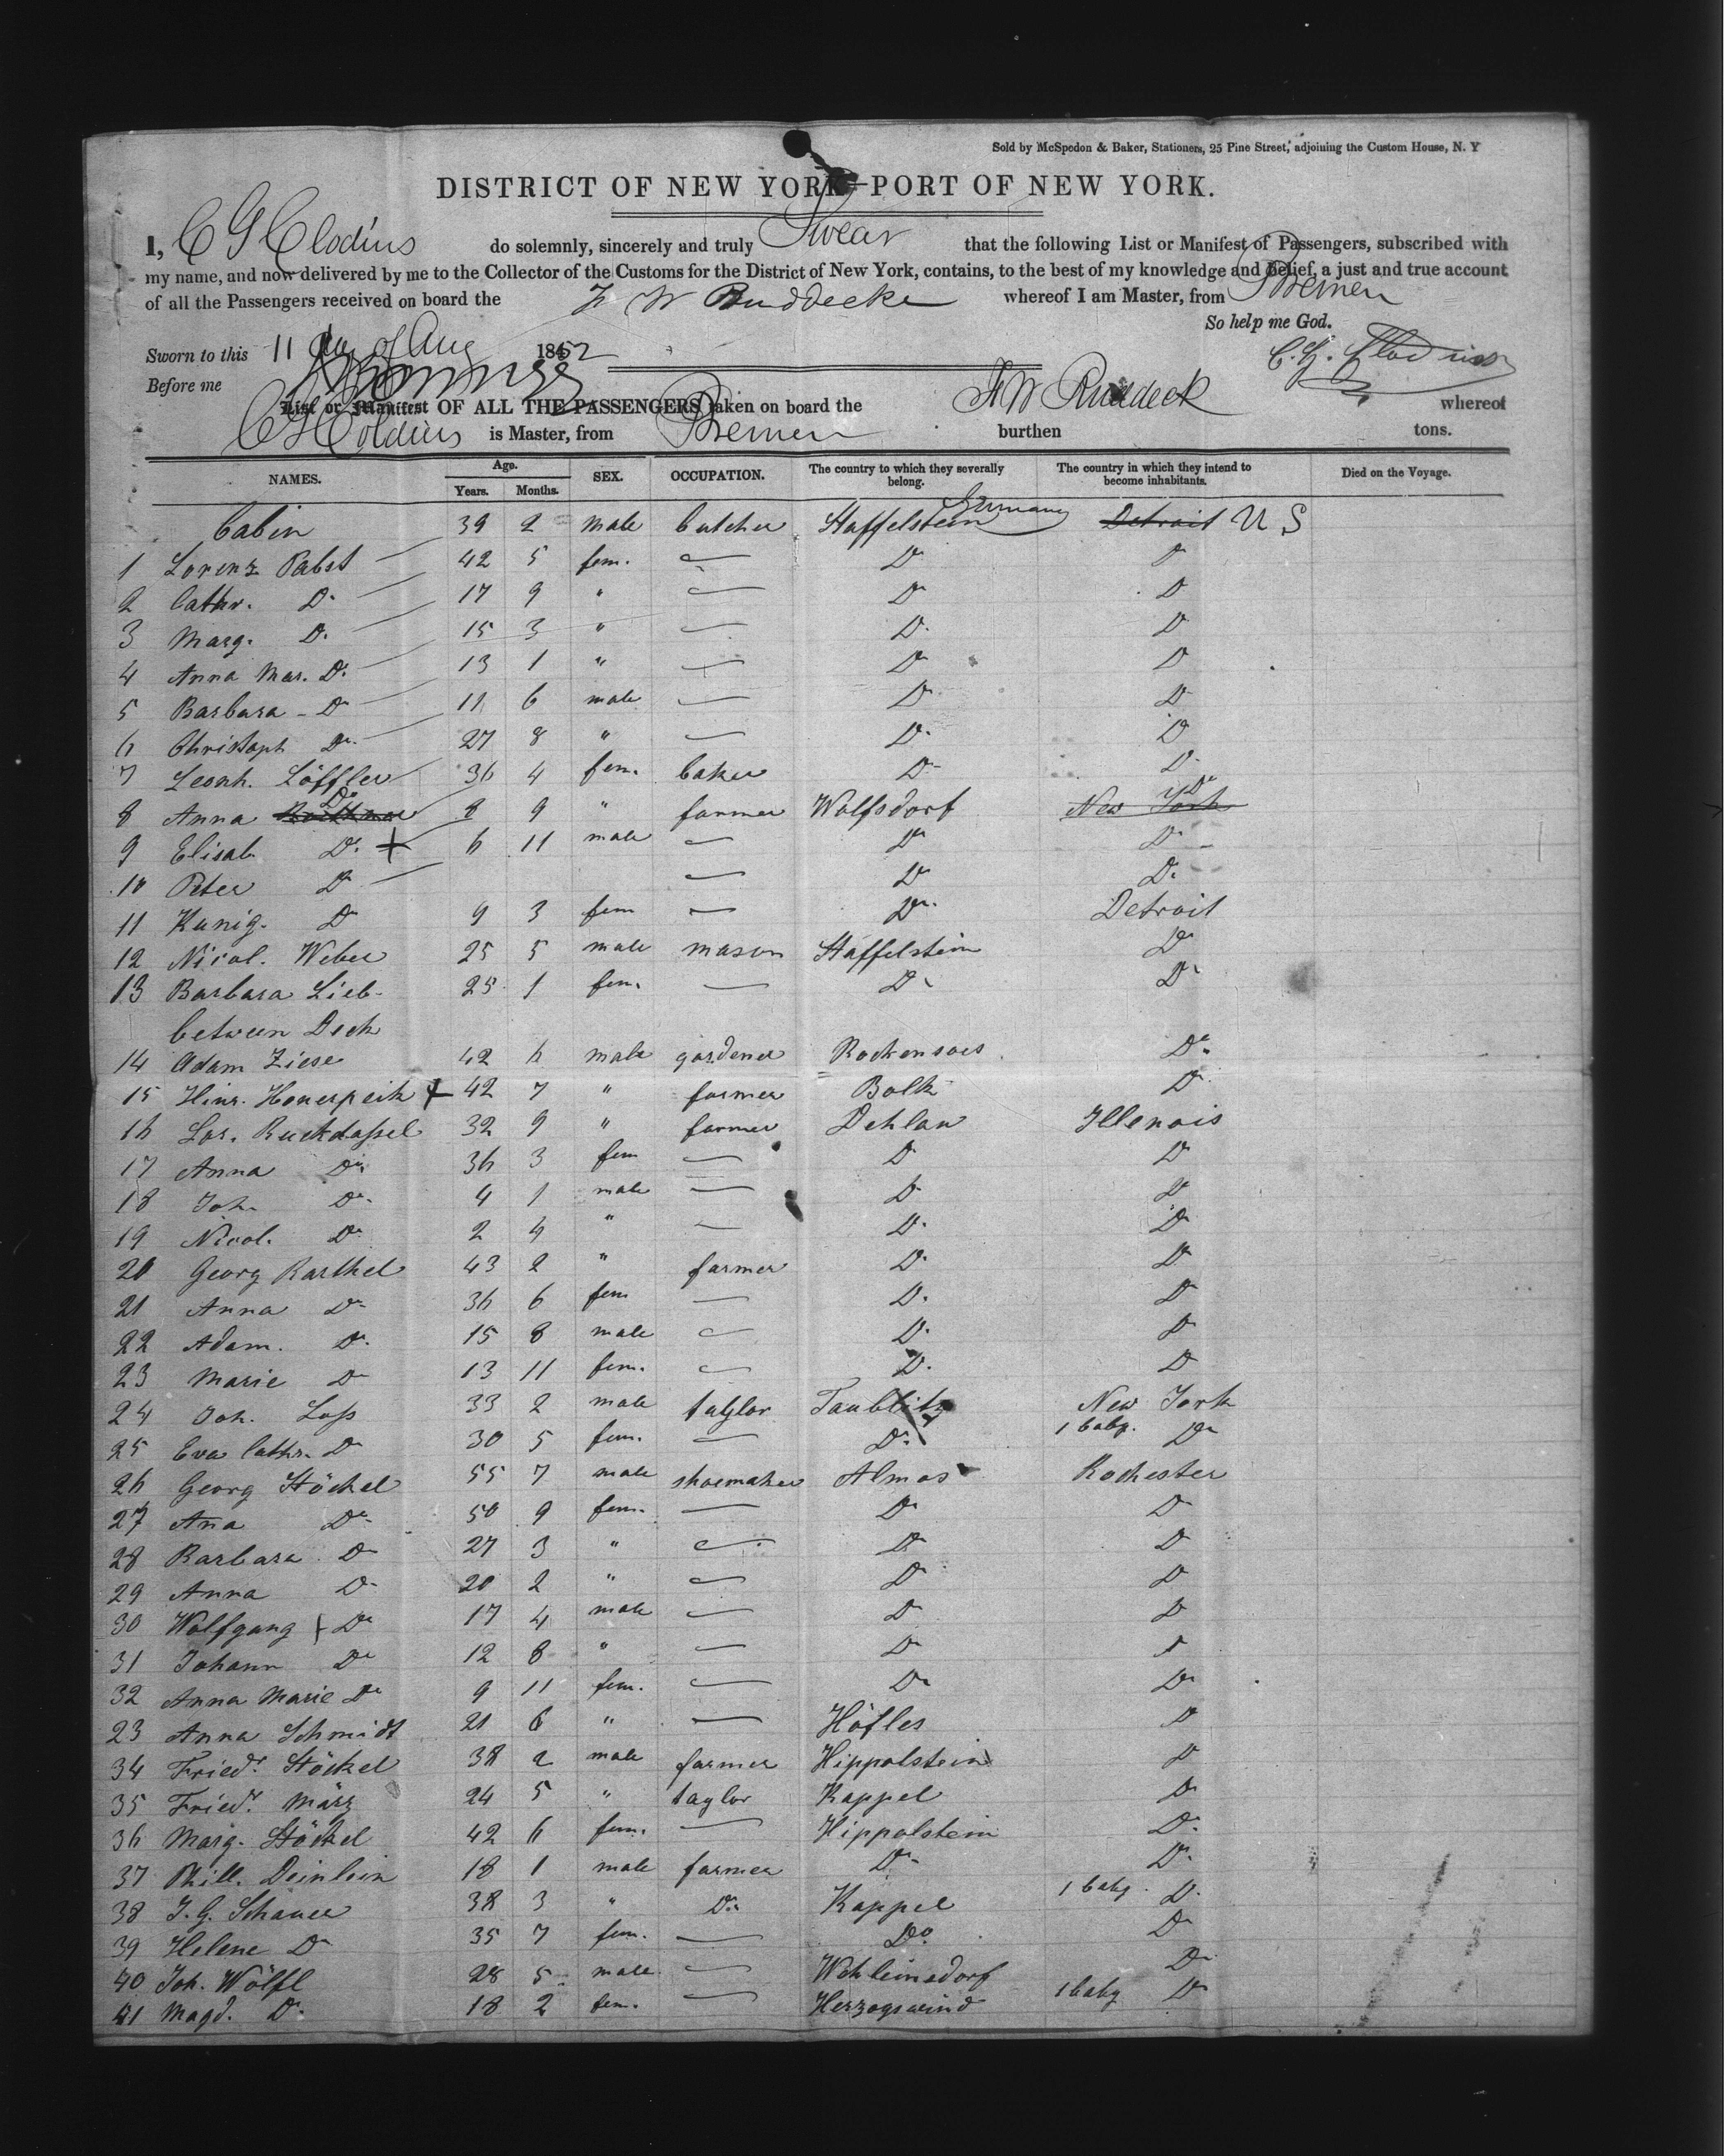 Sold by McSpedon & Baker, Stationers, 25 Pine Street, adjoining the Custom House, N. Y
DISTRICT OF NEW YORK—PORT OF NEW YORK.
I, C G Clodius do solemnly, sincerely and truly Swear that the following List or Manifest of Passengers, subscribed with
my name, and now delivered by me to the Collector of the Customs for the District of New York, contains, to the best of my knowledge and belief, a just and true account
of all the Passengers received on board the F W Buddecke whereof I am Master, from Bremen
So help me God.
Sworn to this 11 day of Aug 1852 C. G. Clodius
Before me
List or Manifest OF ALL THE PASSENGERS taken on board the F W Buddeck whereof
C G Coldius is Master, from Bremen burthen tons.
NAMES. Age. Years. Months. SEX. OCCUPATION. The country to which they severally belong. The country in which they intend to become inhabitants. Died on the Voyage.
Cabin 39 2 male butcher Staffelstein Germany Detroit U S
1 Lorenz Pabst 42 5 fem. — Do Do
2 Cathr. Do 17 9 " — Do Do
3 Marg. Do 15 3 " — Do Do
4 Anna Mar. Do 13 1 " — Do Do
5 Barbara - Do 11 6 male — Do Do
6 Christoph Do 27 8 " — Do Do
7 Leonh. Löffler 36 4 fem. baker Do Do
8 Anna Do 8 9 " farmer Wolfsdorf New York Do
9 Elisab. Do + 6 11 male — Do Do
10 Peter Do — Do Do
11 Kunig. Do 9 3 fem — Do Detroit
12 Nicol. Weber 25 5 male mason Staffelstein Do
13 Barbara Lieb- 25 1 fem. — Do Do
between Deck
14 Adam Ziese 42 6 male gardener Do
15 Hinr. + 42 7 " farmer Do
16 Lor. Ruckdaſsel 32 9 " farmer Dehlau Illenois
17 Anna Do 36 3 fem — Do Do
18 Joh. Do 4 1 male — Do Do
19 Nicol. Do 2 4 " — Do Do
20 Georg Barthel 43 2 " farmer Do Do
21 Anna Do 36 6 fem — Do Do
22 Adam. Do 15 8 male — Do Do
23 Marie Do 13 11 fem. — Do Do
24 Joh. Loſs 33 2 male taylor Taublitz New York
25 Eva Cathr. Do 30 5 fem. — Do 1 baby. Do
26 Georg Stöckel 55 7 male shoemaker Almos Rochester
27 Ana Do 50 9 fem. — Do Do
28 Barbara Do 27 3 " — Do Do
29 Anna Do 20 2 " — Do Do
30 Wolfgang + Do 17 4 male — Do Do
31 Johann Do 12 8 " — Do Do
32 Anna Marie Do 9 11 fem. — Do Do
23 Anna Schmidt 21 6 " — Höfles Do
34 Friedr. Stöckel 38 2 male farmer Hippolstein Do
35 Friedr. März 24 5 " taylor Kappel Do
36 Marg. Stöckel 42 6 fem. — Hippolstein Do
37 Phill. Deinlein 18 1 male farmer Do Do
38 J. G. Schauer 38 3 " Do Kappel 1 baby. Do
39 Helene Do 35 7 fem. — Do Do
40 Joh. Wölfl 28 5 male — Wohleinsdorf Do
41 Magd. Do 18 2 fem. — Herzogwind 1 baby Do